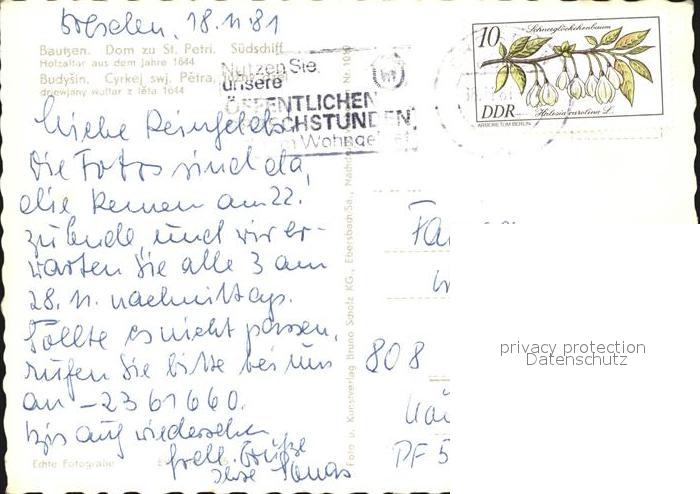 Dresden, 18.11.81
Bautzen. Dom zu St. Petri. Südschiff
Holzaltar aus dem Jahre 1644
Budyšin. Cyrkej swj. Pětra,
drjewjany wołtar z lěta 1644
Nutzen Sie
unsere
ÖFFENTLICHEN
CHSTUNDEN
Wohnge
10
Schneeglöckchenbaum
DDR
Halesia carolina L.
ARBORETUM BERLIN
Liebe Reinfelds
Die Fotos sind da,
die Rennen am 22.
zuende, und wir er-
warten Sie alle 3 am
28. 11. nachmittags.
Sollte es nicht passen,
rufen Sie bitte bei uns
an – 2361660.
Bis auf wiedersehen
frdl. Grüße
Ihre
Echte Fotografie
Foto u. Kunstverlag Bruno Scholz KG., Ebersbach Sa.,
Fa
808
PF 5
privacy protection
Datenschutz